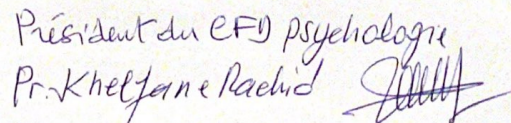 Président du CFD psychologie
Pr. Kheljane Rachid